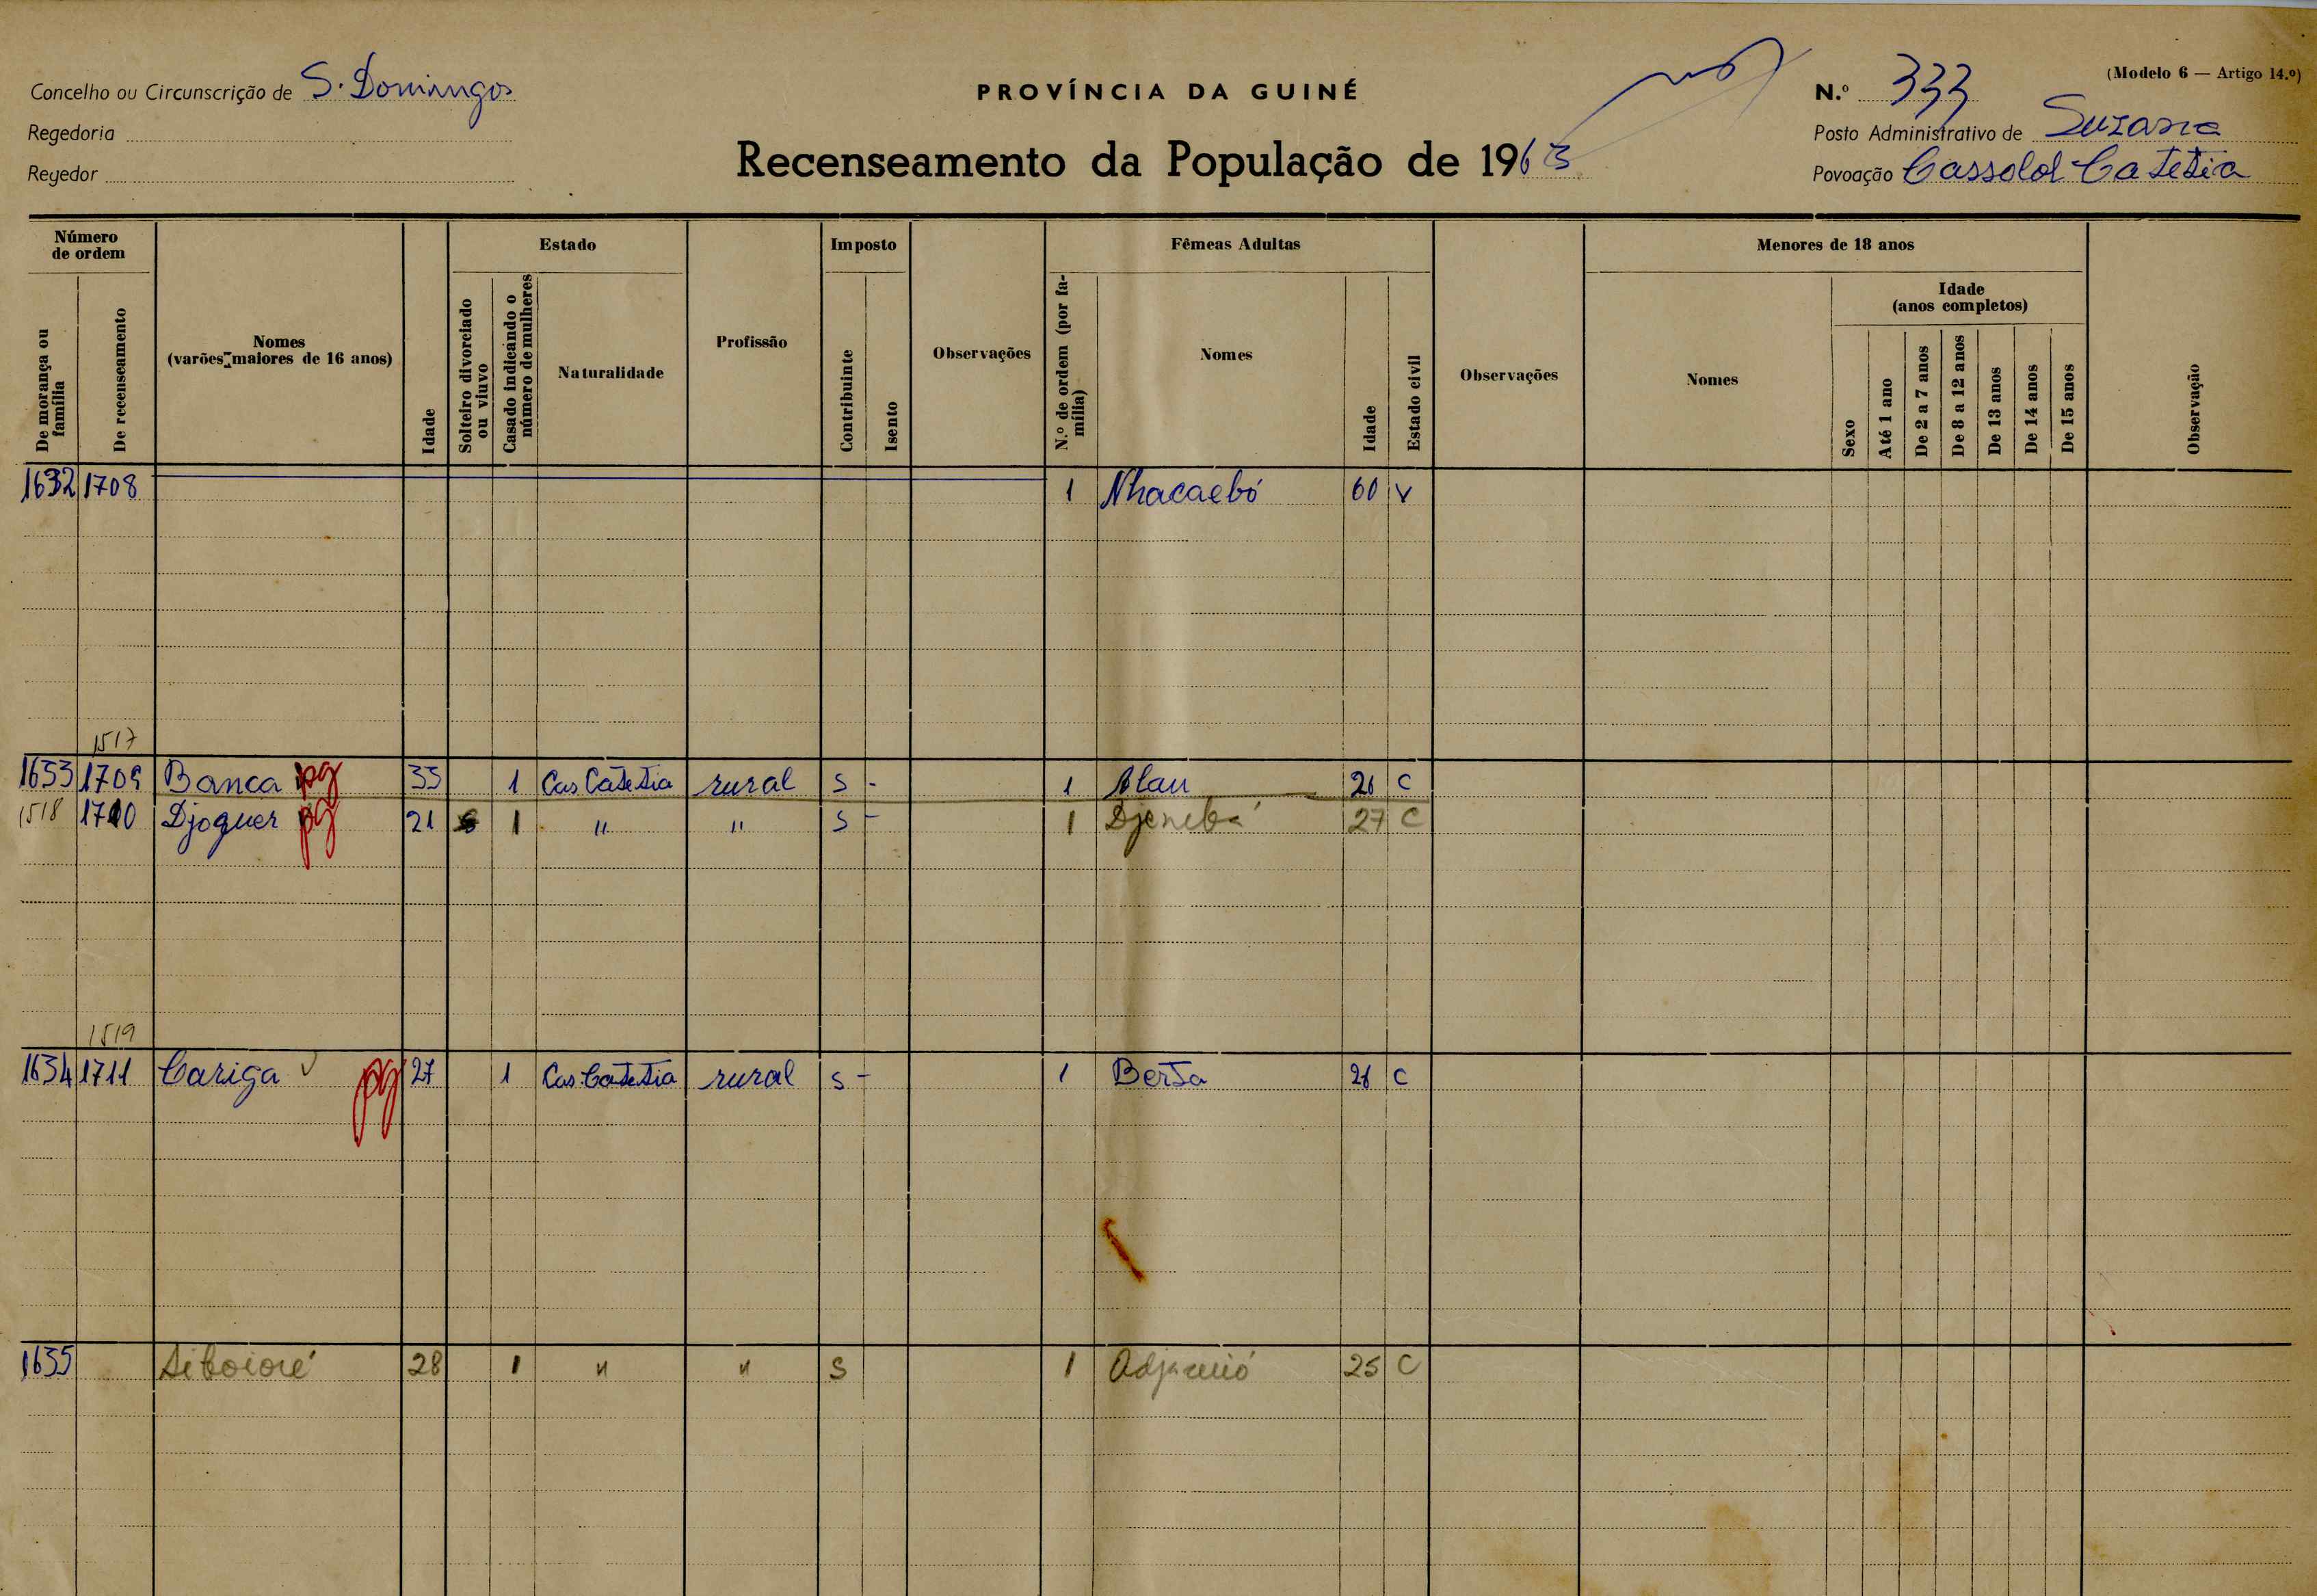 (Modelo 6 — Artigo 14.º)
Concelho ou Circunscrição de S. Domingos
PROVÍNCIA DA GUINÉ
N.º 333
Regedoria
Posto Administrativo de Suzana
Recenseamento da População de 1963
Regedor
Povoação Cassolol Catetia
Número de ordem
Estado
Imposto
Fêmeas Adultas
Menores de 18 anos
De morança ou família
De recenseamento
Nomes
(varões maiores de 16 anos)
Idade
Solteiro divorciado ou viuvo
Casado indicando o número de mulheres
Naturalidade
Profissão
Contribuinte
Isento
Observações
N.º de ordem (por família)
Nomes
Idade
Estado civil
Observações
Nomes
Sexo
Idade
(anos completos)
Até 1 ano
De 2 a 7 anos
De 8 a 12 anos
De 13 anos
De 14 anos
De 15 anos
Observação
1632 1708 1 Nhacaebó 60 V
1517
1633 1709 Banca pg 33 1 Cas Catetia rural S - 1 Alau 26 C
1518 1710 Djoguer pg 21 1 " " S - 1 Djenebá 27 C
1519
1634 1711 Cariga pg 27 1 Cas Catetia rural S - 1 Berta 26 C
1635 28 1 " " S 1 25 C